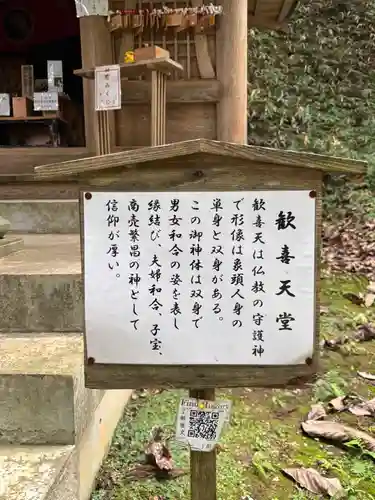 歓喜天堂
歓喜天は仏教の守護神
で形像は象頭人身の
単身と双身がある。
この御神体は双身で
男女和合の姿を表し
縁結び、夫婦和合、子宝、
商売繁昌の神として
信仰が厚い。